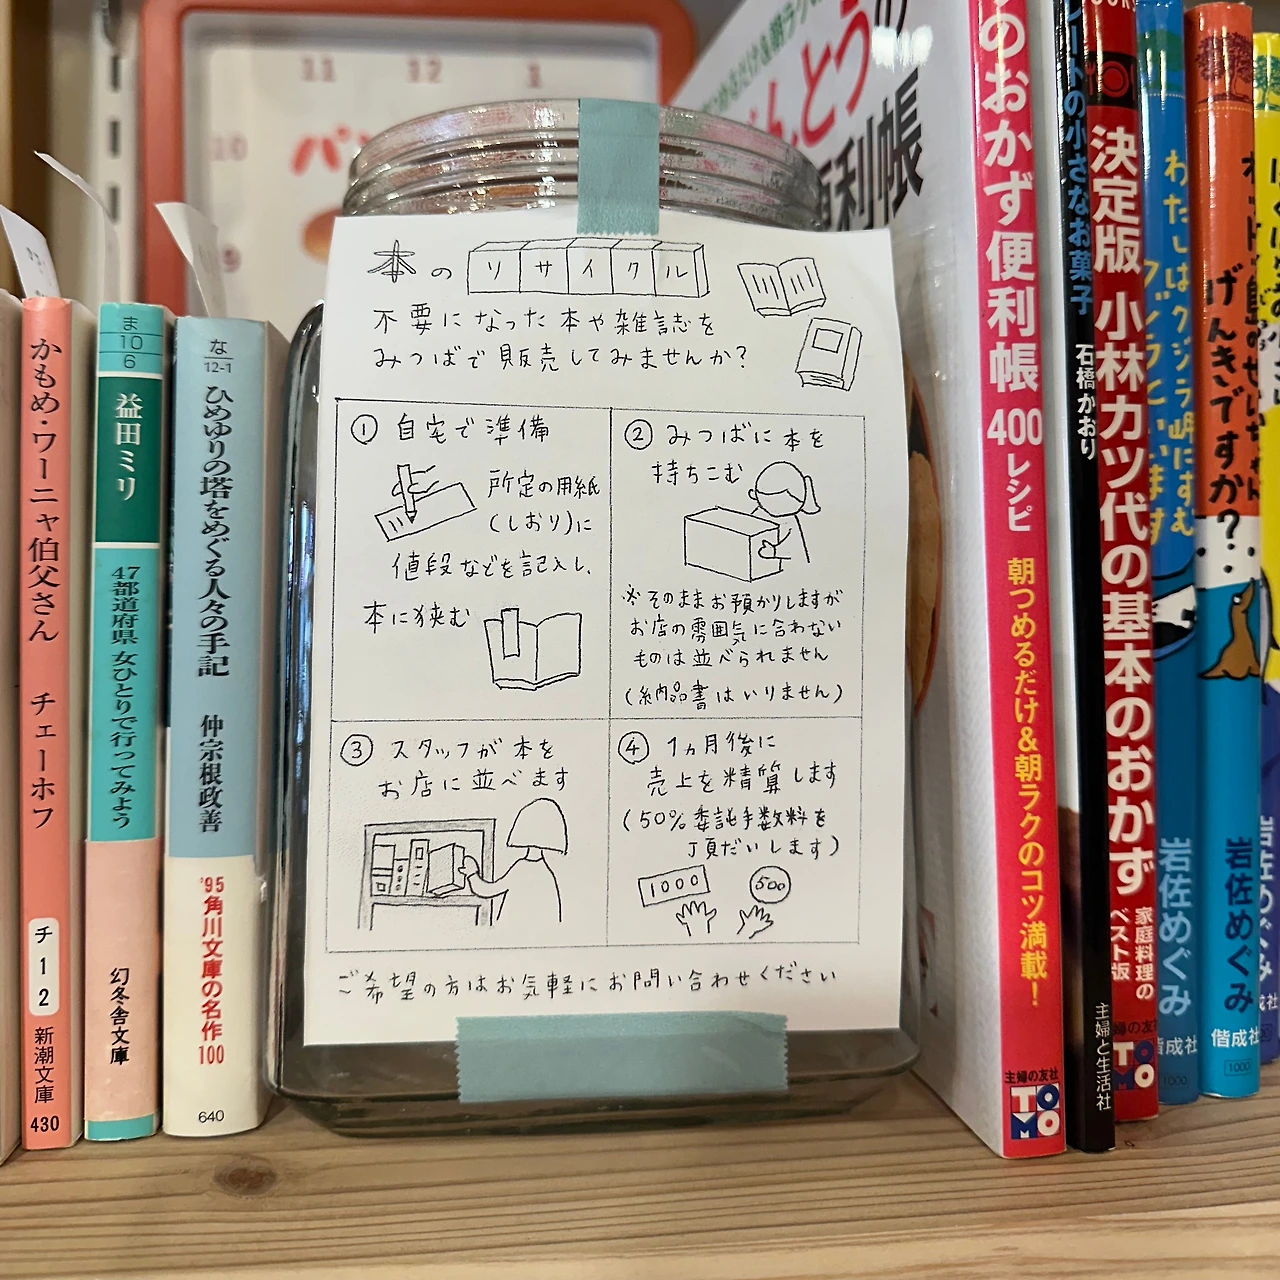 本のリサイクル
不要になった本や雑誌を
みつばで販売してみませんか?
① 自宅で準備
所定の用紙
(しおり)に
値段などを記入し、
本に挟む
② みつばに本を
持ちこむ
※そのままお預かりしますが
お店の雰囲気に合わない
ものは並べられません
(納品書はいりません)
③ スタッフが本を
お店に並べます
④ 1ヵ月後に
売上を精算します
(50%委託手数料を
頂だいします)
1000
500
ご希望の方はお気軽にお問い合わせください
かもめ・ワーニャ伯父さん チェーホフ
チ 1 2
新潮文庫
430
ま
10
6
益田ミリ
47都道府県 女ひとりで行ってみよう
幻冬舎文庫
な
12-1
ひめゆりの塔をめぐる人々の手記 仲宗根政善
'95角川文庫の名作100
640
11 12 1
10
9
パン
便利帳
のおかず便利帳 400レシピ 朝つめるだけ&朝ラクのコツ満載!
主婦の友社
TOMO
ートの小さなお菓子 石橋かおり
主婦と生活社
決定版 小林カツ代の基本のおかず
家庭料理のベスト版
主婦の友社
TOMO
わたしはクジラ岬にすむクジラといいます
岩佐めぐみ
偕成社
1000
げんきですか?
岩佐めぐみ
偕成社
1000
岩佐めぐみ